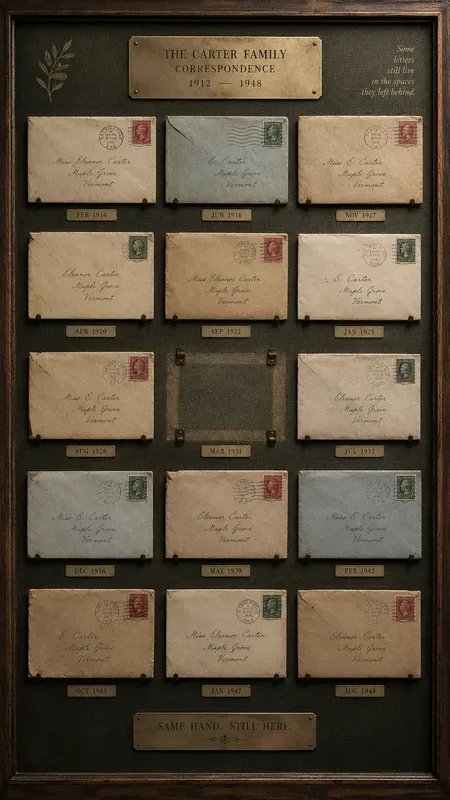 THE CARTER FAMILY
CORRESPONDENCE
1912 — 1948
Some
letters
still live
in the spaces
they left behind.
Miss Eleanor Carter
Maple Grove
Vermont
FEB 1914
E. Carter
Maple Grove
Vermont
JUN 1916
Miss E. Carter
Maple Grove
Vermont
NOV 1917
Eleanor Carter
Maple Grove
Vermont
APR 1920
Miss Eleanor Carter
Maple Grove
Vermont
SEP 1922
E. Carter
Maple Grove
Vermont
JAN 1925
Miss E. Carter
Maple Grove
Vermont
AUG 1928
MAR 1931
Eleanor Carter
Maple Grove
Vermont
JUL 1933
Miss E. Carter
Maple Grove
Vermont
DEC 1936
Eleanor Carter
Maple Grove
Vermont
MAY 1939
Miss E. Carter
Maple Grove
Vermont
FEB 1942
E. Carter
Maple Grove
Vermont
OCT 1945
Miss Eleanor Carter
Maple Grove
Vermont
JAN 1947
Eleanor Carter
Maple Grove
Vermont
AUG 1948
SAME HAND. STILL HERE.